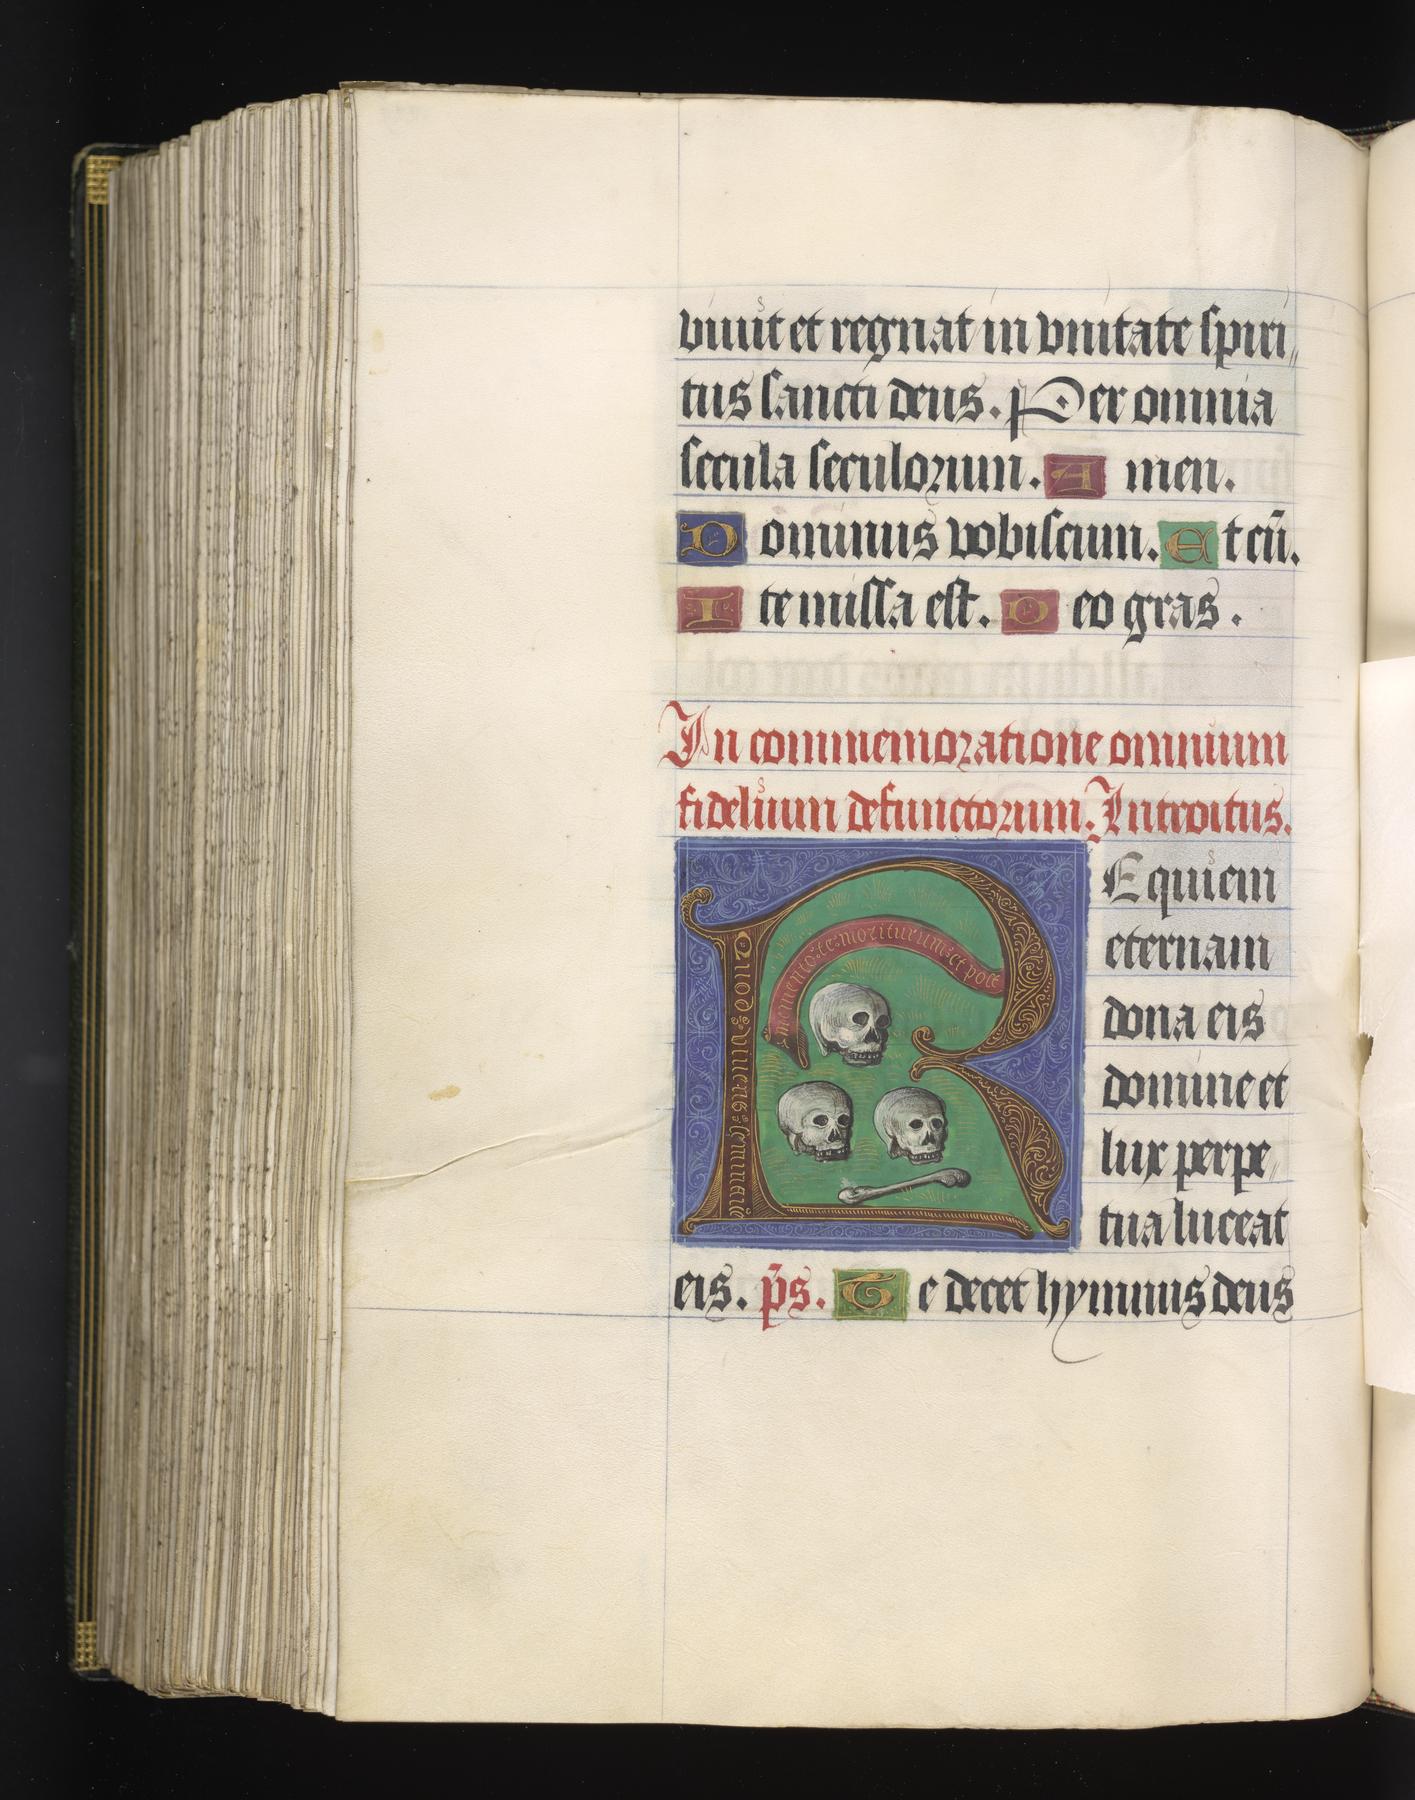 viuit et regnat in vnitate spiri
tus sancti deus. Per omnia
secula seculorum. Amen.
Dominus vobiscum. Et cū.
Ite missa est. Deo gras.
In commemoratione omnium
fidelium defunctorum. Introitus.
memento te moriturum et post
Quod viuens
REquiem
eternam
dona eis
domine et
lux perpe
tua luceat
eis. p̄s. Te decet hymnus deus